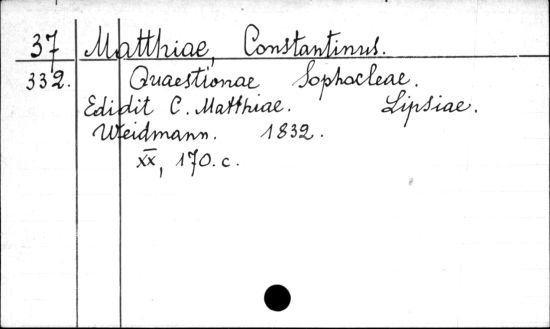 37 Matthiae, Constantinus.
332. Quaestionae Sophocleae.
Edidit C. Matthiae. Lipsiae.
Weidmann. 1832.
XX, 170. c.